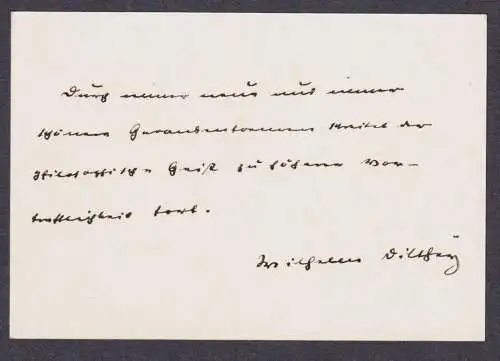 Durch immer neue und immer
schönere Gedankenformen schreitet der
philosophische Geist zu höherer Vor-
trefflichkeit fort.
Wilhelm Dilthey